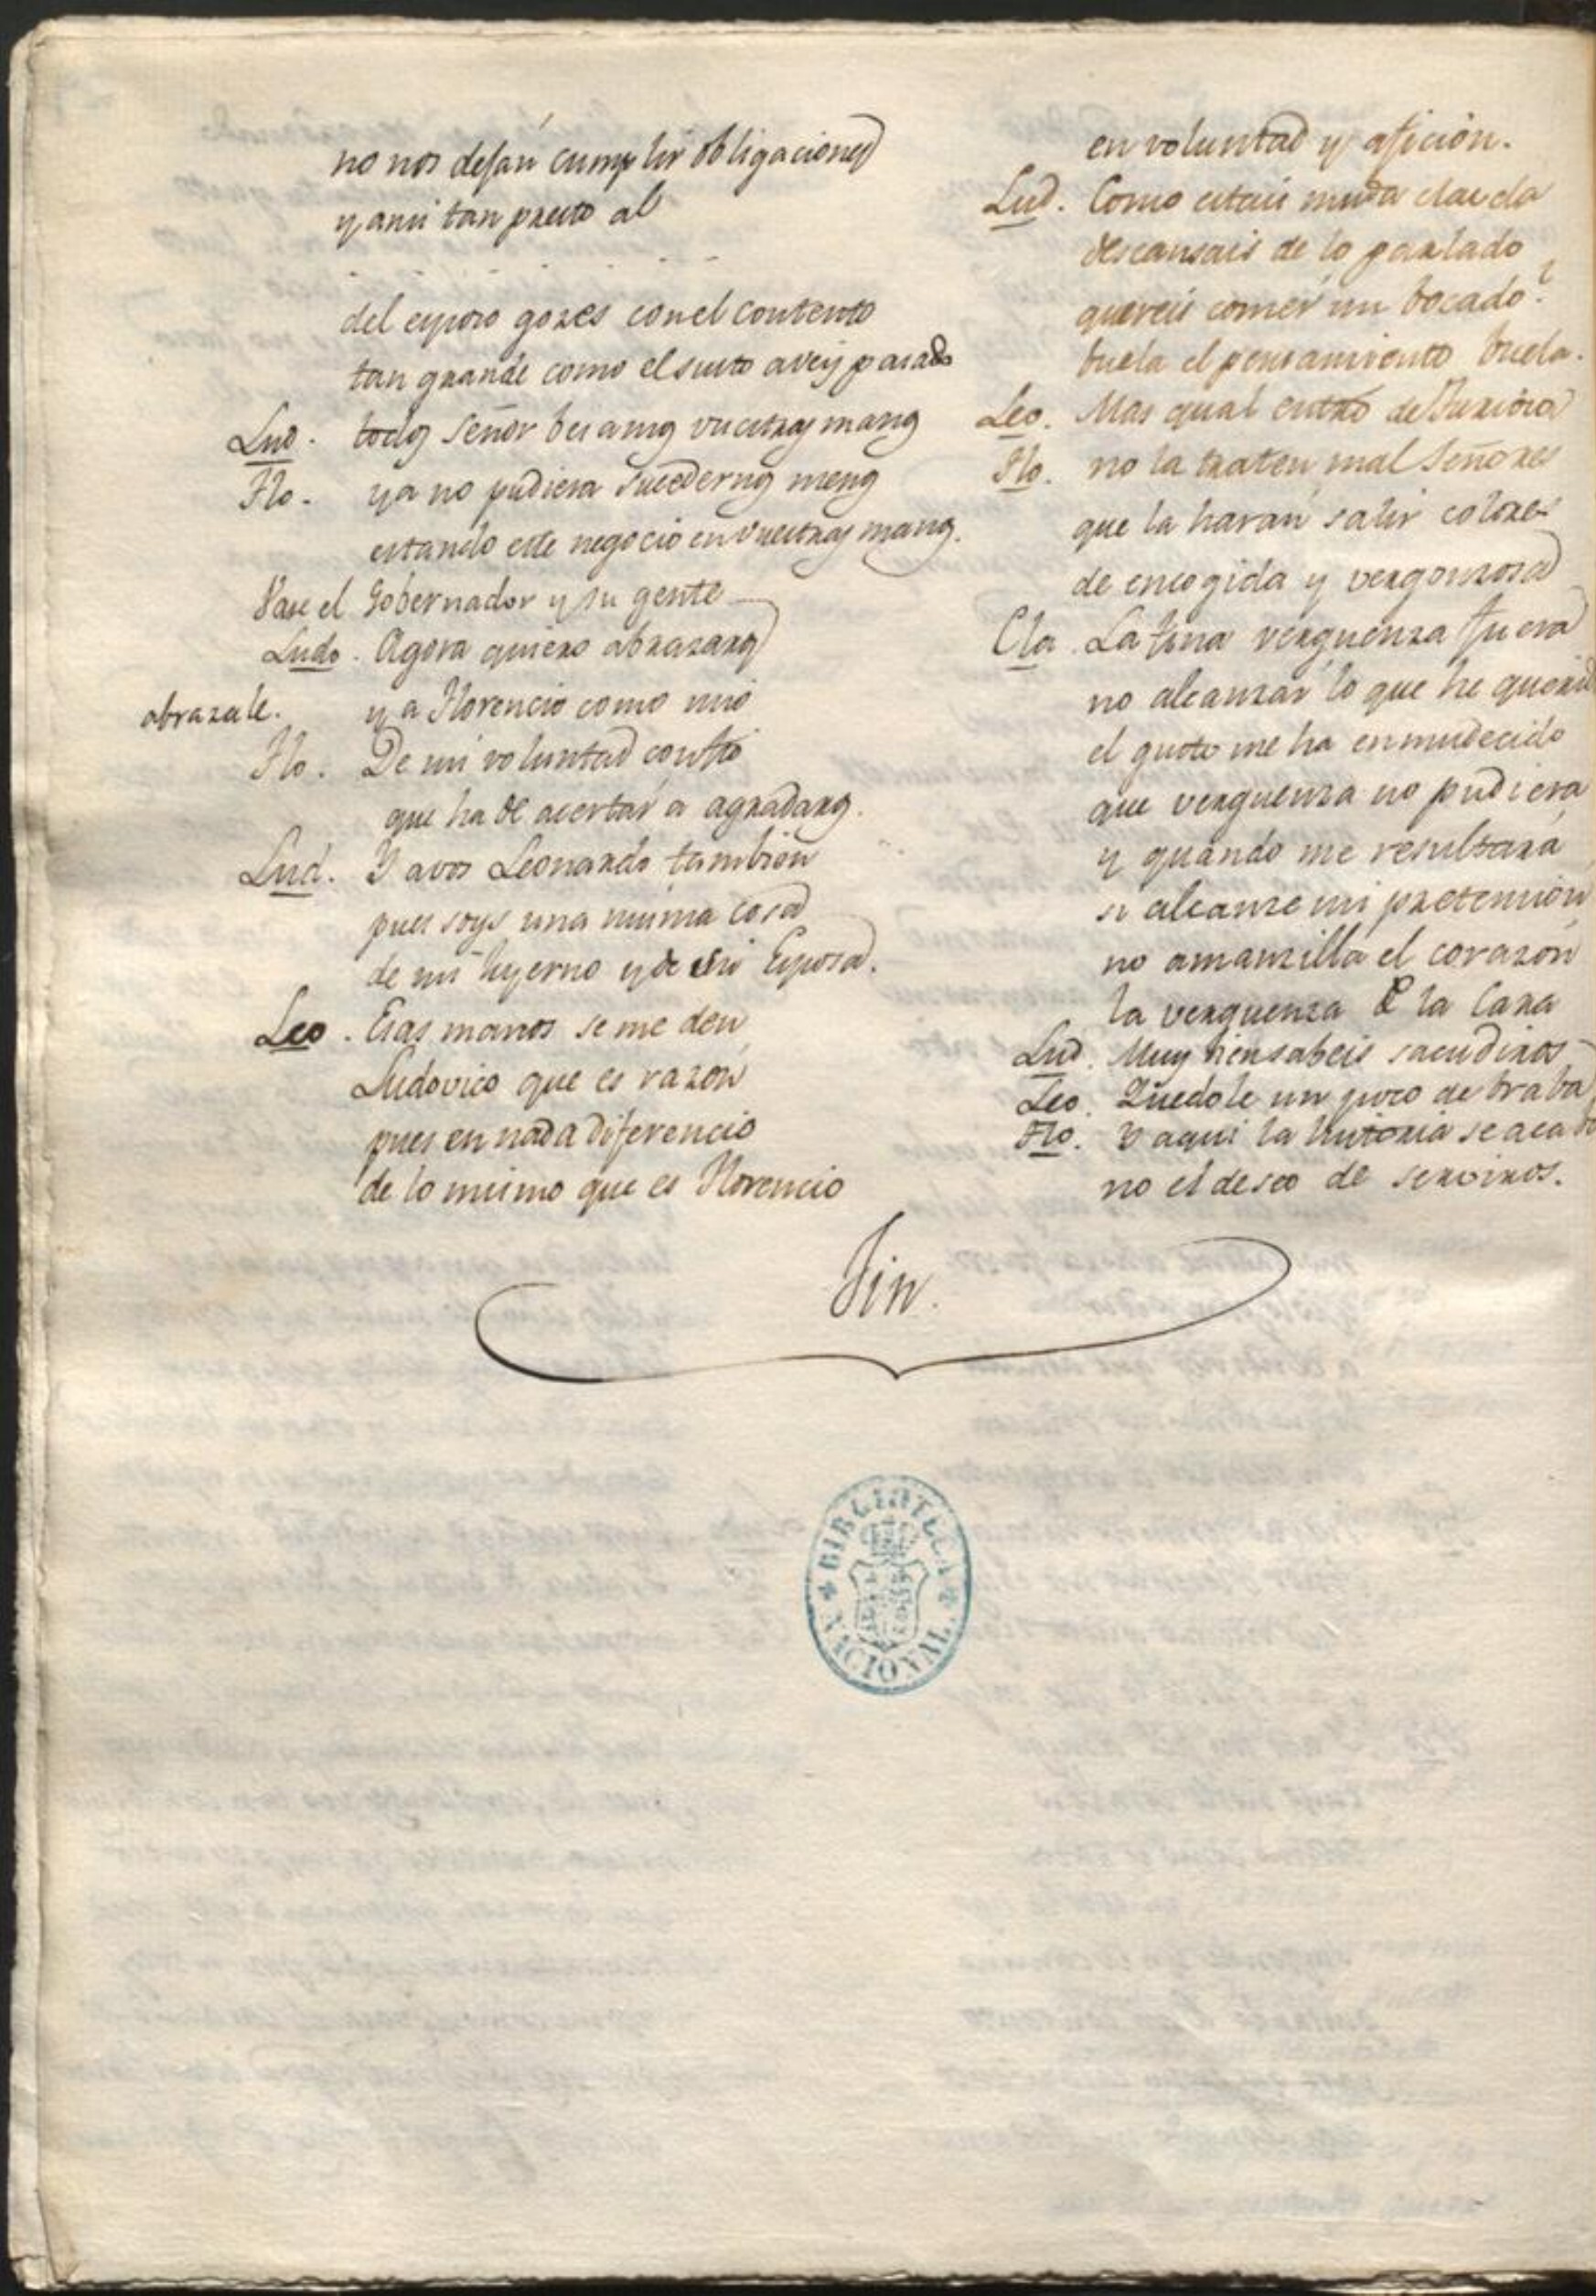 no nos dejan cumplir obligaciones
y ansi tan presto al
- - - - - -
del esposo gozes con el contento
tan grande como el susto aveys pasado
Lud. todos Señor besamos vuestras manos
Flo. ya no pudiera sucedernos menos
estando este negocio en vuestras manos.
Vase el Gobernador y su gente
Ludo. Agora quiero abrazaros
abrazale. y a Florencio como mio
Flo. De mi voluntad confio
que ha de acertar a agradaros.
Lud. Y a vos Leonardo tambien
pues soys una misma cosa
de mi hyerno y de su Esposa.
Leo. Esas manos se me den
Ludovico que es razon
pues en nada diferencio
de lo mismo que es Florencio
en voluntad y aficion.
Lud. Como estais muda claudia
descansais de lo parlado
quereis comer un bocado?
buela el pensamiento buela.
Leo. Mas qual entró de
Flo. no la traten mal Señores
que la harán salir colores
de encogida y vergonzosa
Cla. La fina verguenza fuera
no alcanzar lo que he querid
el gusto me ha enmudecido
que verguenza no pudiera
y quando me resultara
si alcanze mi pretension
no amanzilla el corazon
la verguenza de la Cara
Lud. Muy bien sabeis sacudiros
Leo. Quedole un poco de braba
Flo. Y aqui la historia se acaba
no el deseo de serviros.
Fin.
BIBLIOTECA NACIONAL